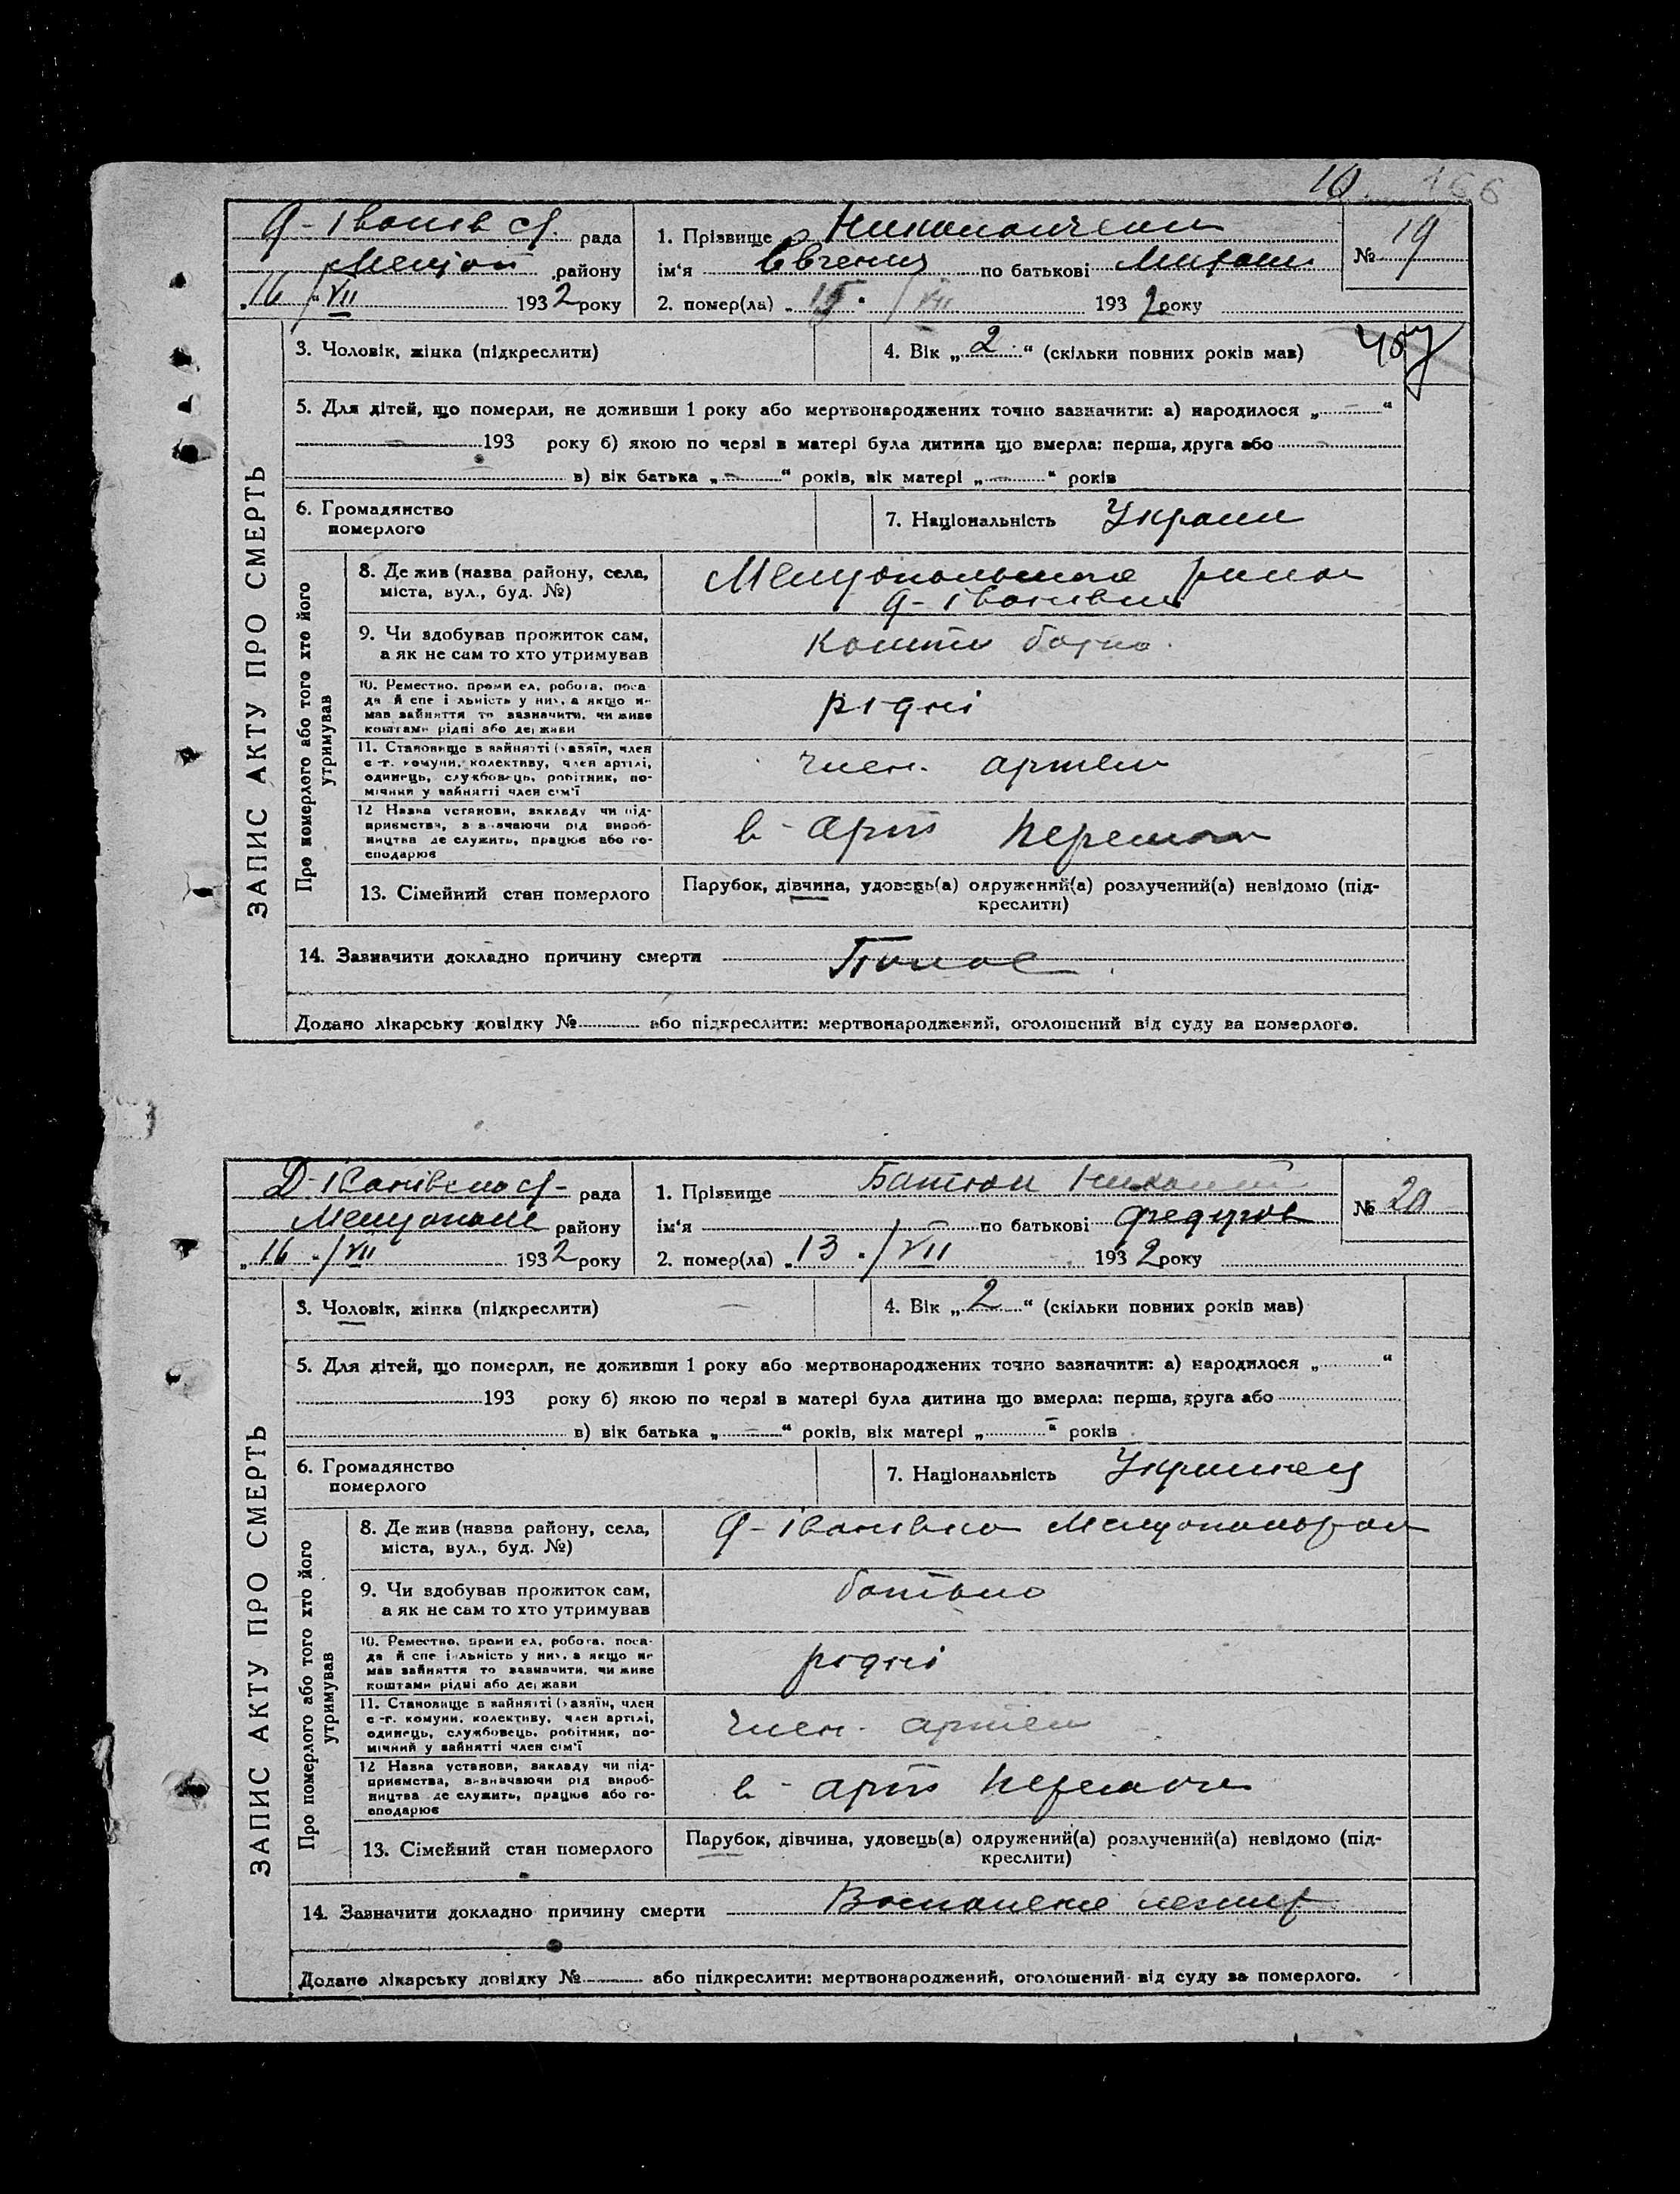 10 166
Д-Іванів с/. рада
1. Прізвище
№ 19
району
ім'я Євгения по батькові
„16 " / VII 1932 року
2. помер(ла) „15 " / VII 1932 року
ЗАПИС АКТУ ПРО СМЕРТЬ
3. Чоловік, жінка (підкреслити)
4. Вік „ 2 " (скільки повних років мав)
5. Для дітей, що померли, не доживши 1 року або мертвонароджених точно зазначити: а) народилося „ – "
– 193 року б) якою по черзі в матері була дитина що вмерла: перша, друга або –
– в) вік батька „ – " років, вік матері „ – " років
6. Громадянство
померлого
7. Національність Украин
Про померлого або того хто його
утримував
8. Де жив (назва району, села,
міста, вул., буд. №)
Д-Іванівка
9. Чи здобував прожиток сам,
а як не сам то хто утримував
Кошти батька
10. Ремество, промисел, робота, поса
да й спеціяльність у них, а якщо не
мав зайняття то зазначити, чи живе
коштами рідні або держави
рідні
11. Становище в зайнятті (хазяїн, член
с.-г. комуни, колективу, член артілі,
одинець, службовець, робітник, по-
мічний у зайнятті член сім'ї
член. артели
12 Назва установи, закладу чи під-
приємства, зазначаючи рід вироб-
ництва де служить, працює або го-
сподарює
в - арт
13. Сімейний стан померлого
Парубок, дівчина, удовець(а) одружений(а) розлучений(а) невідомо (під-
креслити)
14. Зазначити докладно причину смерти Понос
Додано лікарську довідку № або підкреслити: мертвонароджений, оголошений від суду за померлого.
Д-Іванівська с/- рада
1. Прізвище Батюк
№ 20
Мелітополь району
ім'я по батькові Федоров
„16 " / VII 1932 року
2. помер(ла) „13 " / VII 1932 року
ЗАПИС АКТУ ПРО СМЕРТЬ
3. Чоловік, жінка (підкреслити) –
4. Вік „ 2 " (скільки повних років мав)
5. Для дітей, що померли, не доживши 1 року або мертвонароджених точно зазначити: а) народилося „ "
193 року б) якою по черзі в матері була дитина що вмерла: перша, друга або
в) вік батька „ – " років, вік матері „ – " років
6. Громадянство
померлого
7. Національність Украинец
Про померлого або того хто його
утримував
8. Де жив (назва району, села,
міста, вул., буд. №)
Д-Іванівка
9. Чи здобував прожиток сам,
а як не сам то хто утримував
батько
10. Ремество, промисел, робота, поса-
да й спеціяльність у них, а якщо не
мав зайняття то зазначити, чи живе
коштами рідні або держави
рідні
11. Становище в зайнятті (хазяїн, член
с.-г. комуни, колективу, член артілі,
одинець, службовець, робітник, по-
мічний у зайнятті член сім'ї
член. артели
12 Назва установи, закладу чи під-
приємства, зазначаючи рід вироб-
ництва де служить, працює або го-
сподарює
в - арт
13. Сімейний стан померлого
Парубок, дівчина, удовець(а) одружений(а) розлучений(а) невідомо (під-
креслити)
14. Зазначити докладно причину смерти
Додано лікарську довідку № або підкреслити: мертвонароджений, оголошений від суду за померлого.